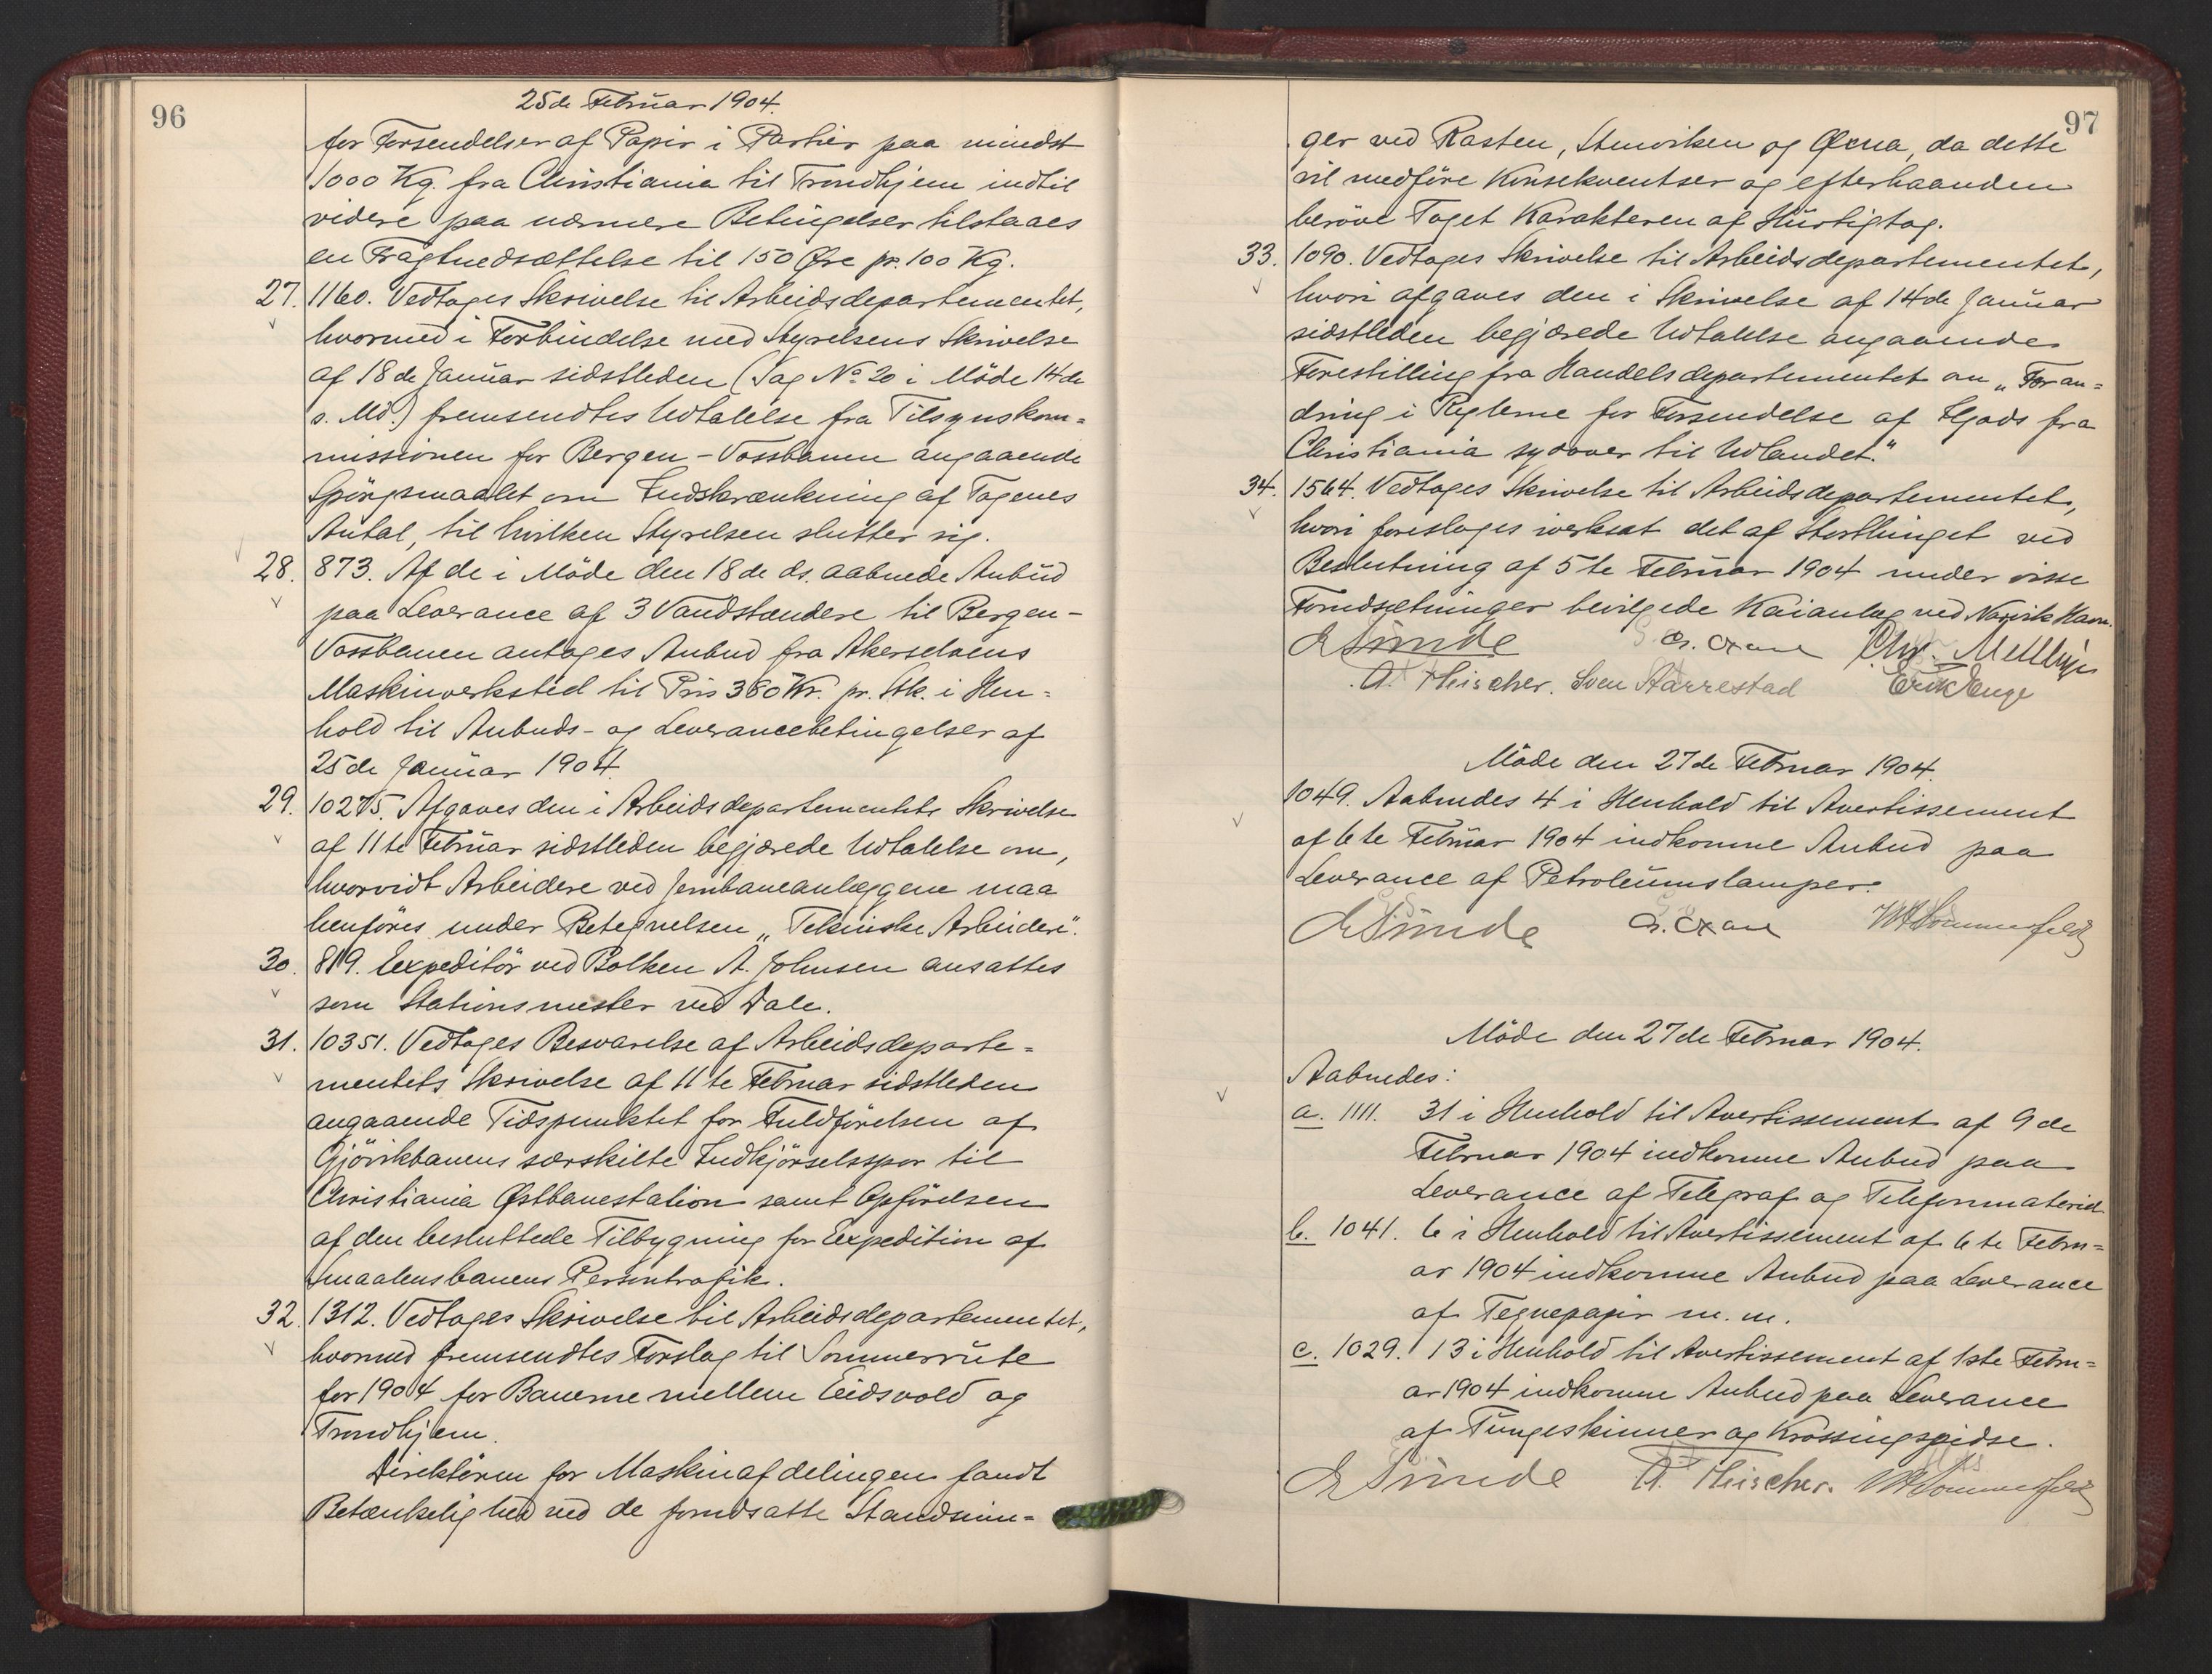 96
25de Februar 1904.
for Forsendelser af Papir i Partier paa mindst
1000 Kg. fra Christiania til Trondhjem indtil
videre paa nærmere Betingelser tilstaaes
en Fragtnedsættelse til 150 Øre pr. 100 Kg.
27. 1160. Vedtages Skrivelse til Arbeidsdepartementet,
hvormed i Forbindelse med Styrelsens Skrivelse
af 18de Januar sidstleden (Sag No 20 i Möde 14de
s. Md.) fremsendtes Udtalelse fra Tilsynskom=
missionen for Bergen-Vossbanen angaaende
Spörgsmaalet om Indskrænkning af Togenes
Antal, til hvilken Styrelsen slutter sig.
28. 873. Af de i Möde den 18de ds. aabnede Anbud
paa Leverance af 3 Vandstændere til Bergen-
Vossbanen antages Anbud fra Akerselvens
Maskinverksted til Pris 380 Kr. pr. Stk. i Hen=
hold til Anbuds- og Leverancebetingelser af
25de Januar 1904.
29. 10275. Afgaves den i Arbeidsdepartementets Skrivelse
af 11te Februar sidstleden begjærede Udtalelse om,
hvorvidt Arbeidere ved Jernbaneanlæggene maa
henföres under Betegnelsen „Tekniske Arbeidere".
30. 819. Expeditör ved Bolken A. Johnsen ansattes
som Stationsmester ved Dale.
31. 10351. Vedtages Besvarelse af Arbeidsdeparte=
mentets Skrivelse af 11te Februar sidstleden
angaaende Tidspunktet for Fuldförelsen af
Gjövikbanens særskilte Indkjörselsspor til
Christiania Østbanestation samt Opförelsen
af den besluttede Tilbygning for Expedition af
Smaalensbanens Persontrafik.
32. 1312. Vedtages Skrivelse til Arbeidsdepartementet,
hvormed fremsendtes Forslag til Sommerrute
for 1904 for Banerne mellem Eidsvold og
Trondhjem.
Direktören for Maskinafdelingen fandt
Betænkelighed ved de forudsatte Standsnin=
97
ger ved Rasten, Stenviken og Øxna, da dette
vil medföre Konsekventser og efterhaanden
beröve Toget Karakteren af Hurtigtog.
33. 1090. Vedtages Skrivelse til Arbeidsdepartementet,
hvori afgaves den i Skrivelse af 14de Januar
sidstleden begjærede Udtalelse angaaende
Forestilling fra Handelsdepartementet om „Foran=
dring i Reglerne for Forsendelse af Ilgods fra
Christiania sydover til Udlandet."
34. 1564. Vedtages Skrivelse til Arbeidsdepartementet,
hvori foreslages iverksat det af Storthinget ved
Beslutning af 5te Februar 1904 under visse
Forudsætninger bevilgede Kaianlæg ved Narvik Havn.
E Sunde Chr.
A. Fleischer. Sven Aarrestad Erik Enge
Möde den 27de Februar 1904.
1049. Aabnedes 4 i Henhold til Avertissement
af 6te Februar 1904 indkomne Anbud paa
Leverance af Petroleumslamper.
E Sunde Sommerfeldt
Möde den 27de Februar 1904.
Aabnedes:
a. 1111. 31 i Henhold til Avertissement af 9de
Februar 1904 indkomne Anbud paa
Leverance af Telegraf og Telefonmateriel
b. 1041. 6 i Henhold til Avertissement af 6te Febru=
ar 1904 indkomne Anbud paa Leverance
af Tegnepapir m.m.
c. 1029. 13 i Henhold til Avertissement af 1ste Febru=
ar 1904 indkomne Anbud paa Leverance
af Tungeskinner og Krossingspidse.
E Sunde A. Fleischer. Sommerfeldt